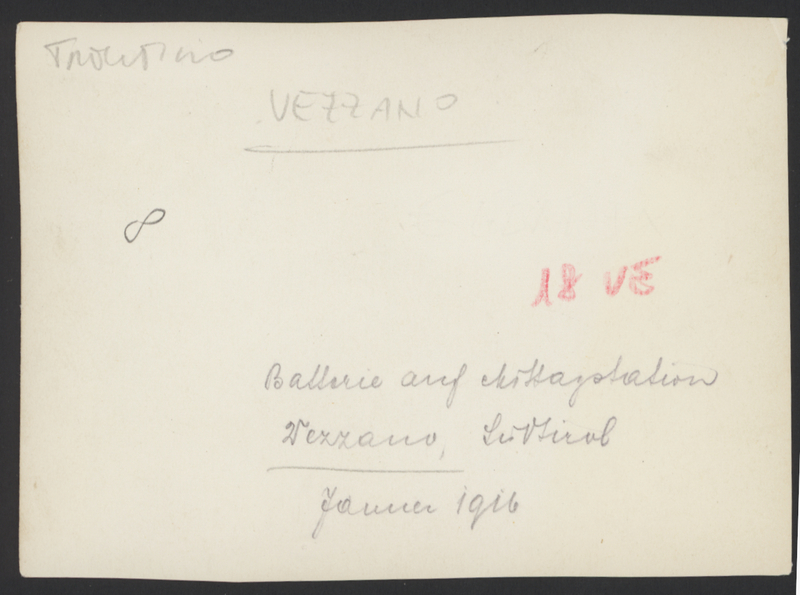 Trentino
VEZZANO
8
18 VE
Batterie auf Mittagstation
Vezzano, Südtirol
Jänner 1916